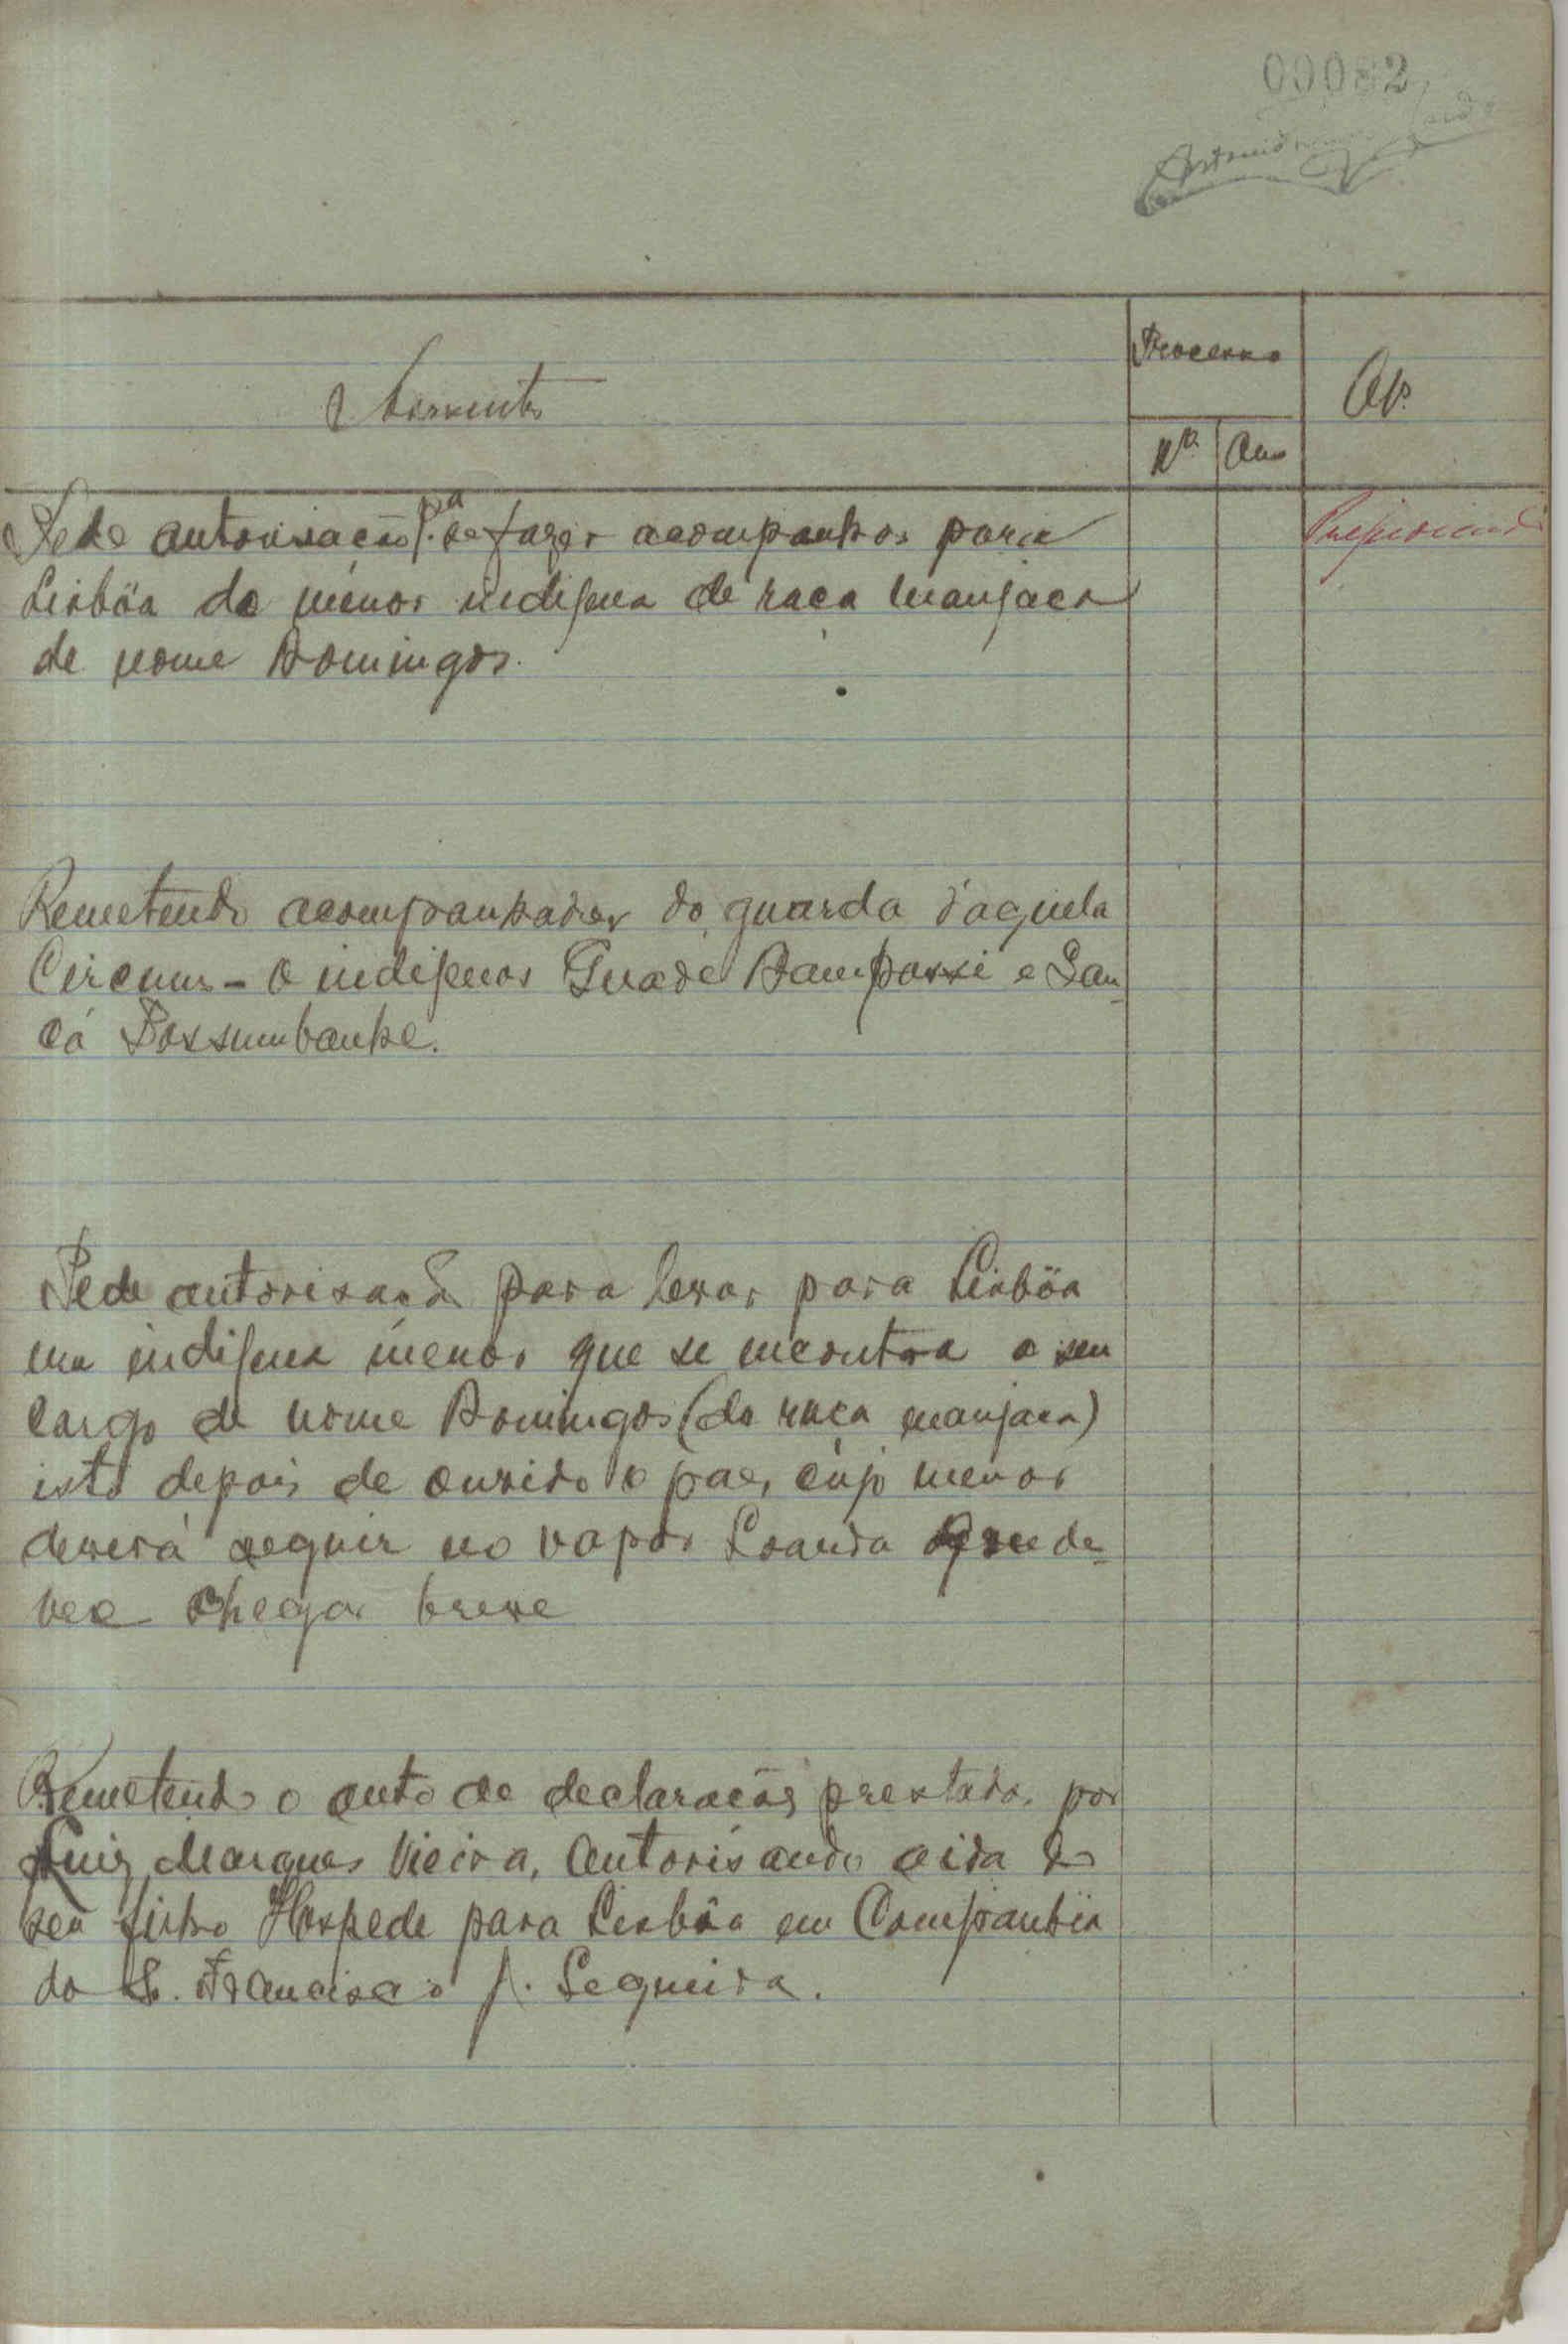 00082
Antonio
Processo
Assuntos
Obs.
Nº Ano
Pede autorisação pª se fazer acompanhar para
Prejudicado
Lisbôa do menor indigena de raça manjaca
de nome Domingos.
Remetendo acompanhados do guarda d'aquela
Circuns - o indigenas Guade Dampossi e San-
cá Possumbanhe.
Pede autorisação para levar para Lisbôa
um indigena menor que se encontra a seu
cargo de nome Domingos (da raça manjaca)
isto depois de ouvido o pae, cujo menor
deverá seguir no vapor Loanda que de-
ve chegar breve
Remetendo o auto de declarações prestado por
Luiz Marques Vieira, autorisando a ida do
seu filho Hospede para Lisbôa em Companhia
do Sr. Francisco A. Sequeira.